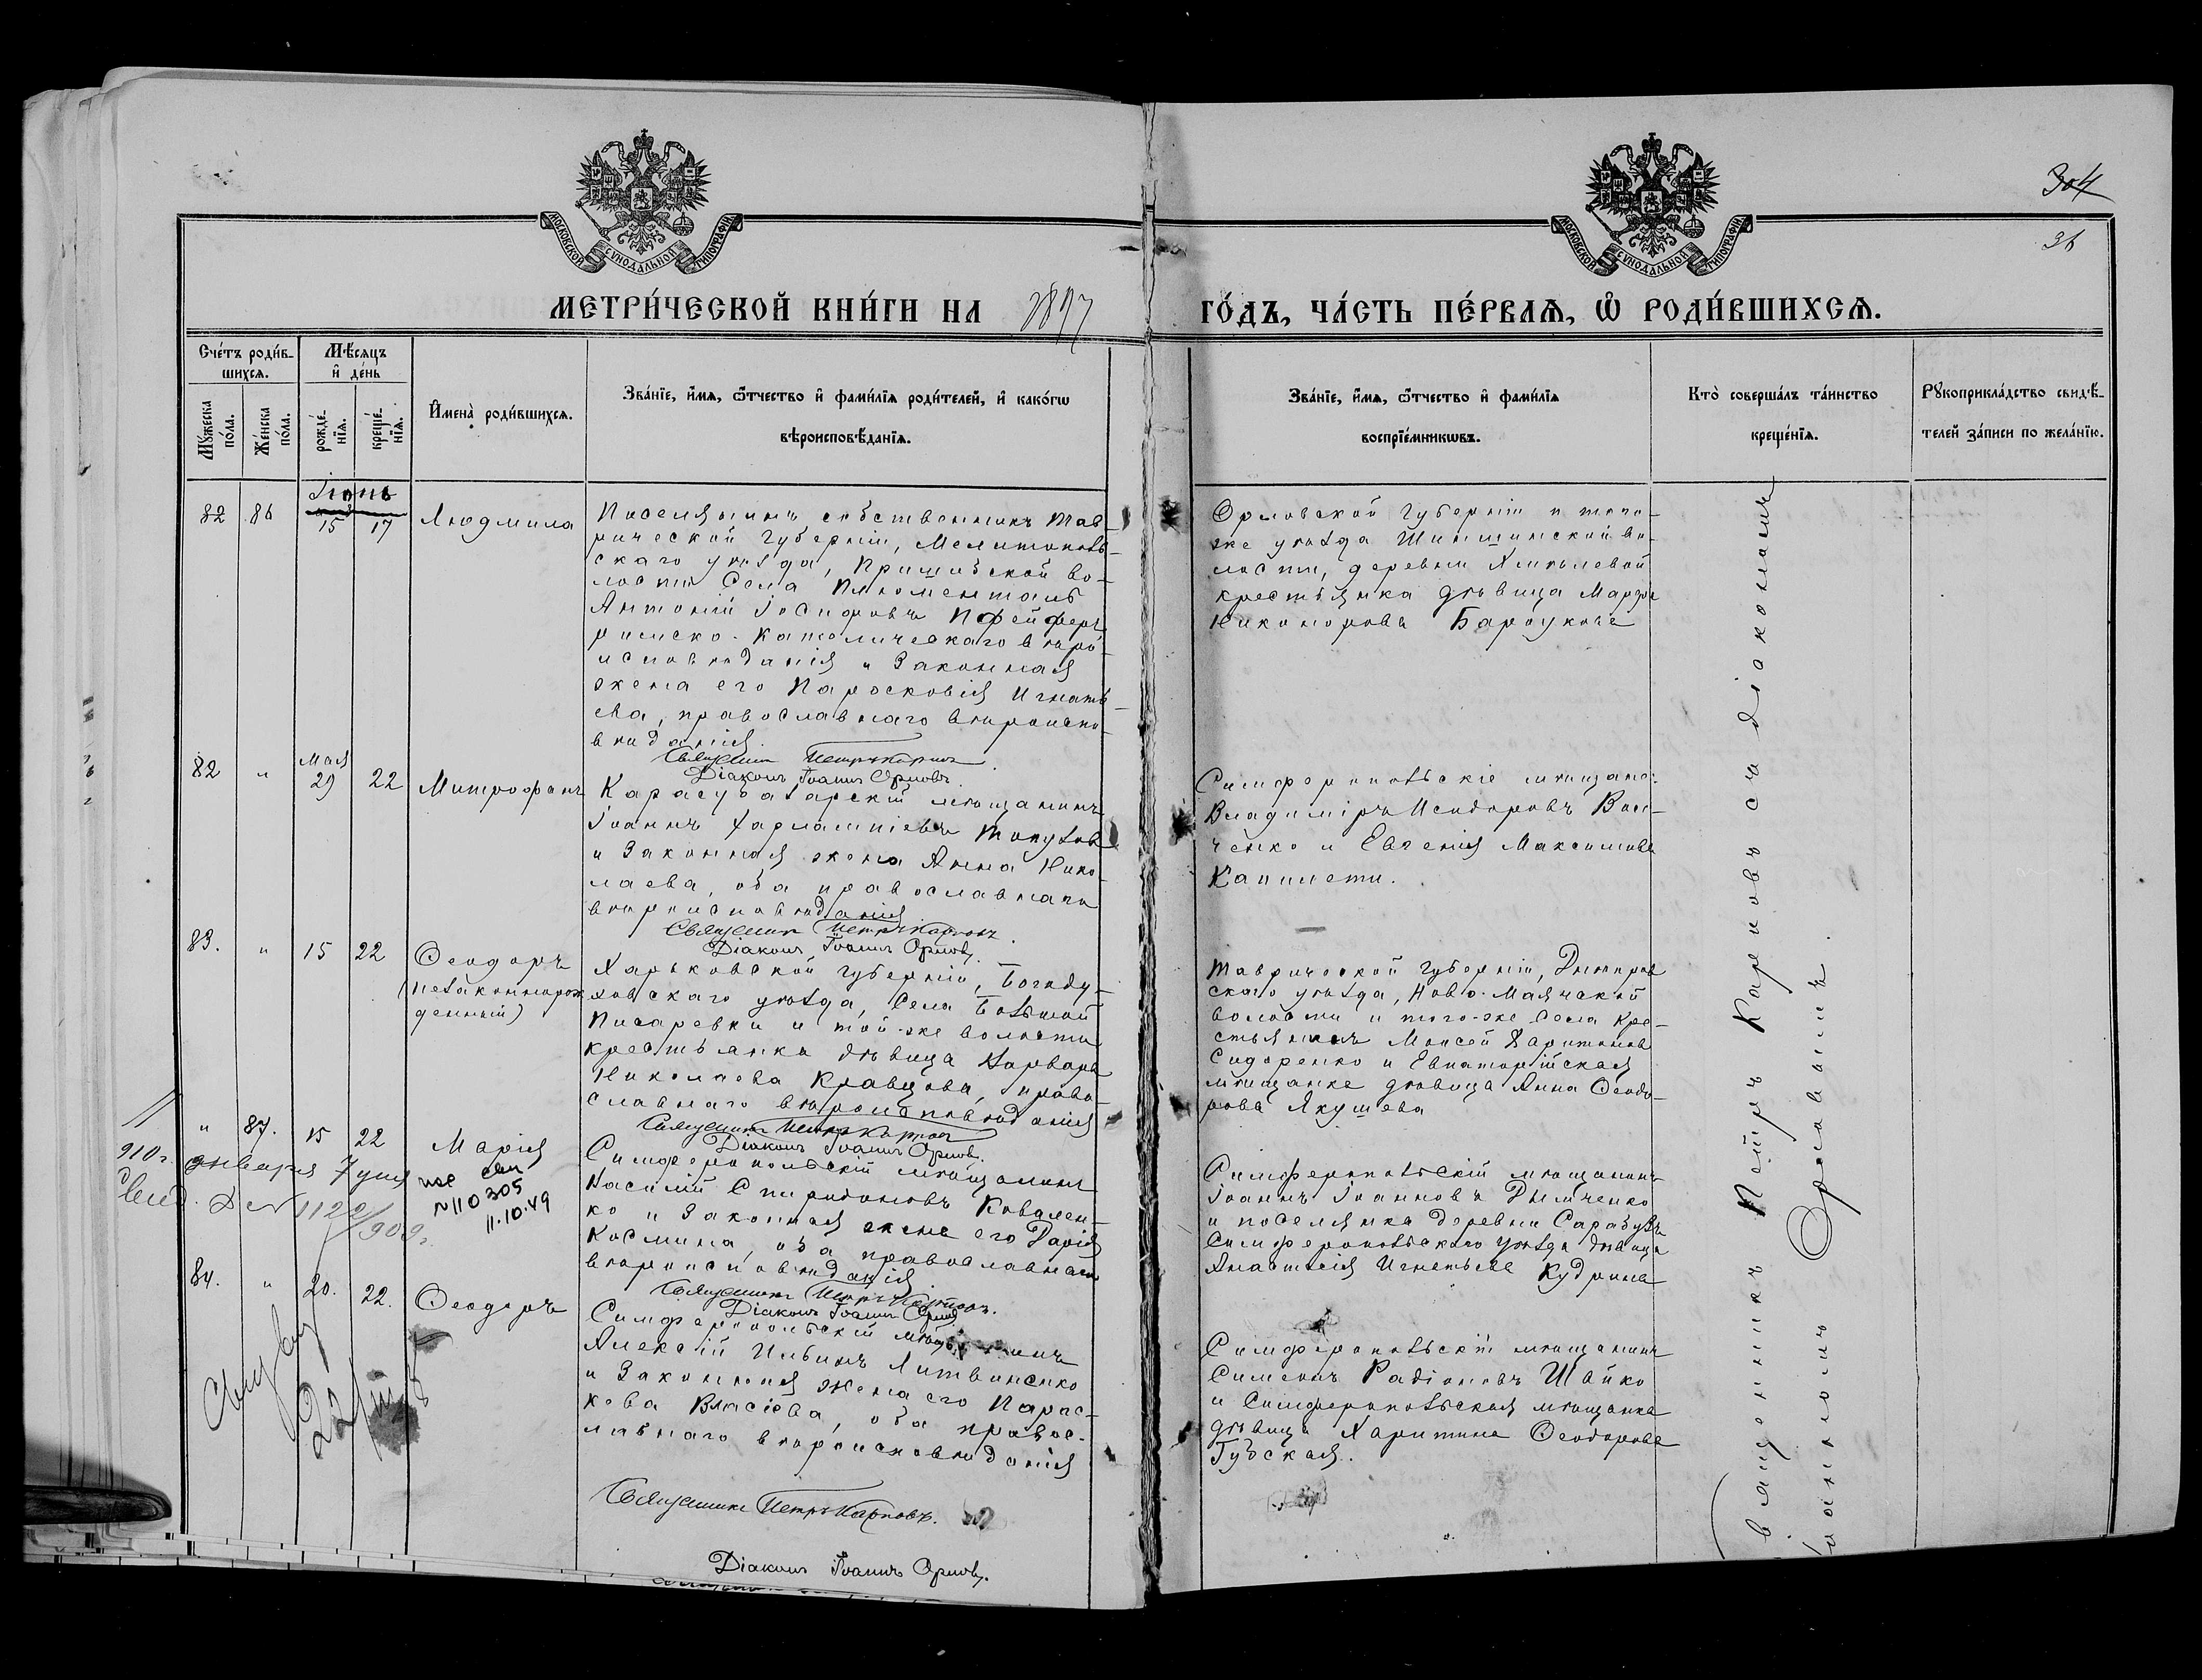 304
36
МОСКОВСКОЙ СѴНОДАЛЬНОЙ ТИПОГРАФІИ
МОСКОВСКОЙ СѴНОДАЛЬНОЙ ТИПОГРАФІИ
МЕТРИ́ЧЕСКОЙ КНИ́ГИ НА 1897 ГО́ДЪ, ЧА́СТЬ ПЕ́РВАѦ, Ѽ РОДИ́ВШИХСѦ.
Сче́тъ роди́в-
шихсѧ.
Мꙋ́жеска
по́ла.
Же́нска
по́ла.
Мѣ́сѧцъ
и҆ де́нь
рожде́-
нїѧ.
креще́-
нїѧ.
И҆мена̀ роди́вшихсѧ.
Зва́нїе, и҆́мѧ, ѻ҆́тчество и҆ фами́лїѧ роди́телей, и҆ како́гѡ
вѣроисповѣ́данїѧ.
Зва́нїе, и҆́мѧ, ѻ҆́тчество и҆ фами́лїѧ
воспрїе́мникѡвъ.
Кто̀ соверша́лъ та́инство
креще́нїѧ.
Рꙋкоприкла́дство свидѣ́-
телей за́писи по жела́нїю.
Іюнь
82 86 15 17 Людмила
Поселянинъ собственникъ Тав-
рической губерніи, Мелитополь-
скаго уѣзда, Пришибской во-
лости Села Блюменталь
Антоній Іосифовъ Пфейферъ
римско-католическаго вѣро-
исповѣданія и Законная
жена его Парасковія Игнать-
ева, православнаго вѣроиспо-
вѣданія.
Священникъ Петръ Карповъ.
Діаконъ Іоаннъ Орловъ.
Орловской губерніи и того-
же уѣзда во-
лости, деревни
крестьянка дѣвица Марфа
Никонорова
Мая
82 " 29 22 Митрофанъ
Карасубазарскій мѣщанинъ
Іоаннъ Харлампіевъ
и Законная жена Анна Нико-
лаева, оба православнаго
вѣроисповѣданія
Священникъ Петръ Карповъ.
Діаконъ Іоаннъ Орловъ.
Симферопольскіе мѣщане:
Владиміръ Исидоровъ Вои-
ченко и Евгенія Максимова
83. " 15 22 Ѳеодоръ
(незаконнорож
денный)
Харьковской губерніи, Богоду-
ховскаго уѣзда, Села Большой
Писаревки и той-же волости
крестьянка дѣвица Варвара
Николаева Кравцова, право-
славнаго вѣроисповѣданія
Священникъ Петръ Карповъ
Діаконъ Іоаннъ Орловъ.
Таврической губерніи, Днѣпров
скаго уѣзда, Ново-Маячской
волости и того-же Села Кре-
стьянинъ Моисей Харитоновъ
Сидоренко и Евпаторійская
мѣщанка дѣвица Анна Ѳеодо-
рова Якушева
" 87. 15 22 Марія
Симферопольскій мѣщанинъ
Василій Спиридоновъ Ковален-
ко и Законная жена его Дарія
Космина, оба православнаго
вѣроисповѣданія
Священникъ Петръ Карповъ.
Діаконъ Іоаннъ Орловъ.
Симферопольскій мѣщанинъ
Іоаннъ Іоанновъ Дымченко
и поселянка деревни Сарабузъ
Симферопольскаго уѣзда дѣвица
Анастасія Игнатьева Кудрина
910г. января 7 дня
N 110305
11.10.49
N 1122/909г.
84. " 20. 22. Ѳеодоръ
Симферопольскій мѣщанинъ
Алексій Ильинъ Литвиненко
и Законная жена его Парас-
кева Власіева, оба правос-
лавнаго вѣроисповѣданія
Священникъ Петръ Карповъ.
Діаконъ Іоаннъ Орловъ.
Симферопольскій мѣщанинъ
Симеонъ Радіоновъ Шайко
и Симферопольская мѣщанка
дѣвица Харитина Ѳеодорова
Губская.
Священникъ Петръ Карповъ съ діакономъ
Іоанномъ Орловымъ.